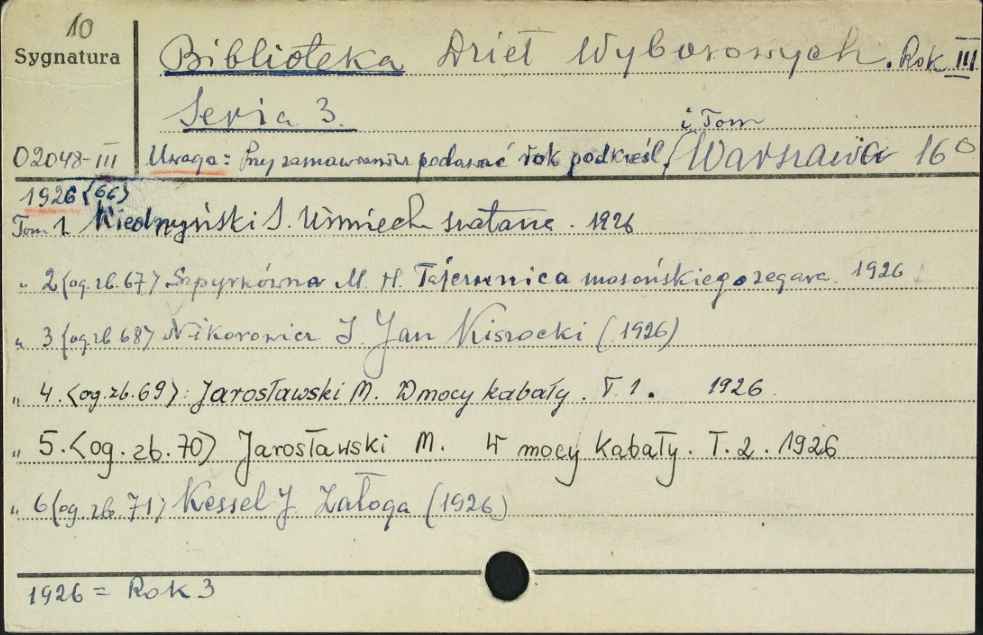 10
Sygnatura
Biblioteka Dzieł Wyborowych. Rok III
Seria 3.
i Tom
02048-III Uwaga: Przy zamawianiu podawać rok podkreśl. Warszawa 16°
1926 <66>
Tom 1. Kiedrzyński S. Uśmiech szatana. 1926
„ 2 <og. zb. 67> Szpyrkówna M. H. Tajemnica zegara. 1926
„ 3 <og. zb 68> Nikorowicz J. Jan Kisrocki (1926)
„ 4. <og. zb. 69>: Jarosławski M. W mocy kabały. T. 1. 1926.
„ 5. <og. zb. 70> Jarosławski M. W mocy kabały. T. 2. 1926
„ 6 <og. zb. 71> Kessel J. Załoga (1926)
1926 = Rok 3